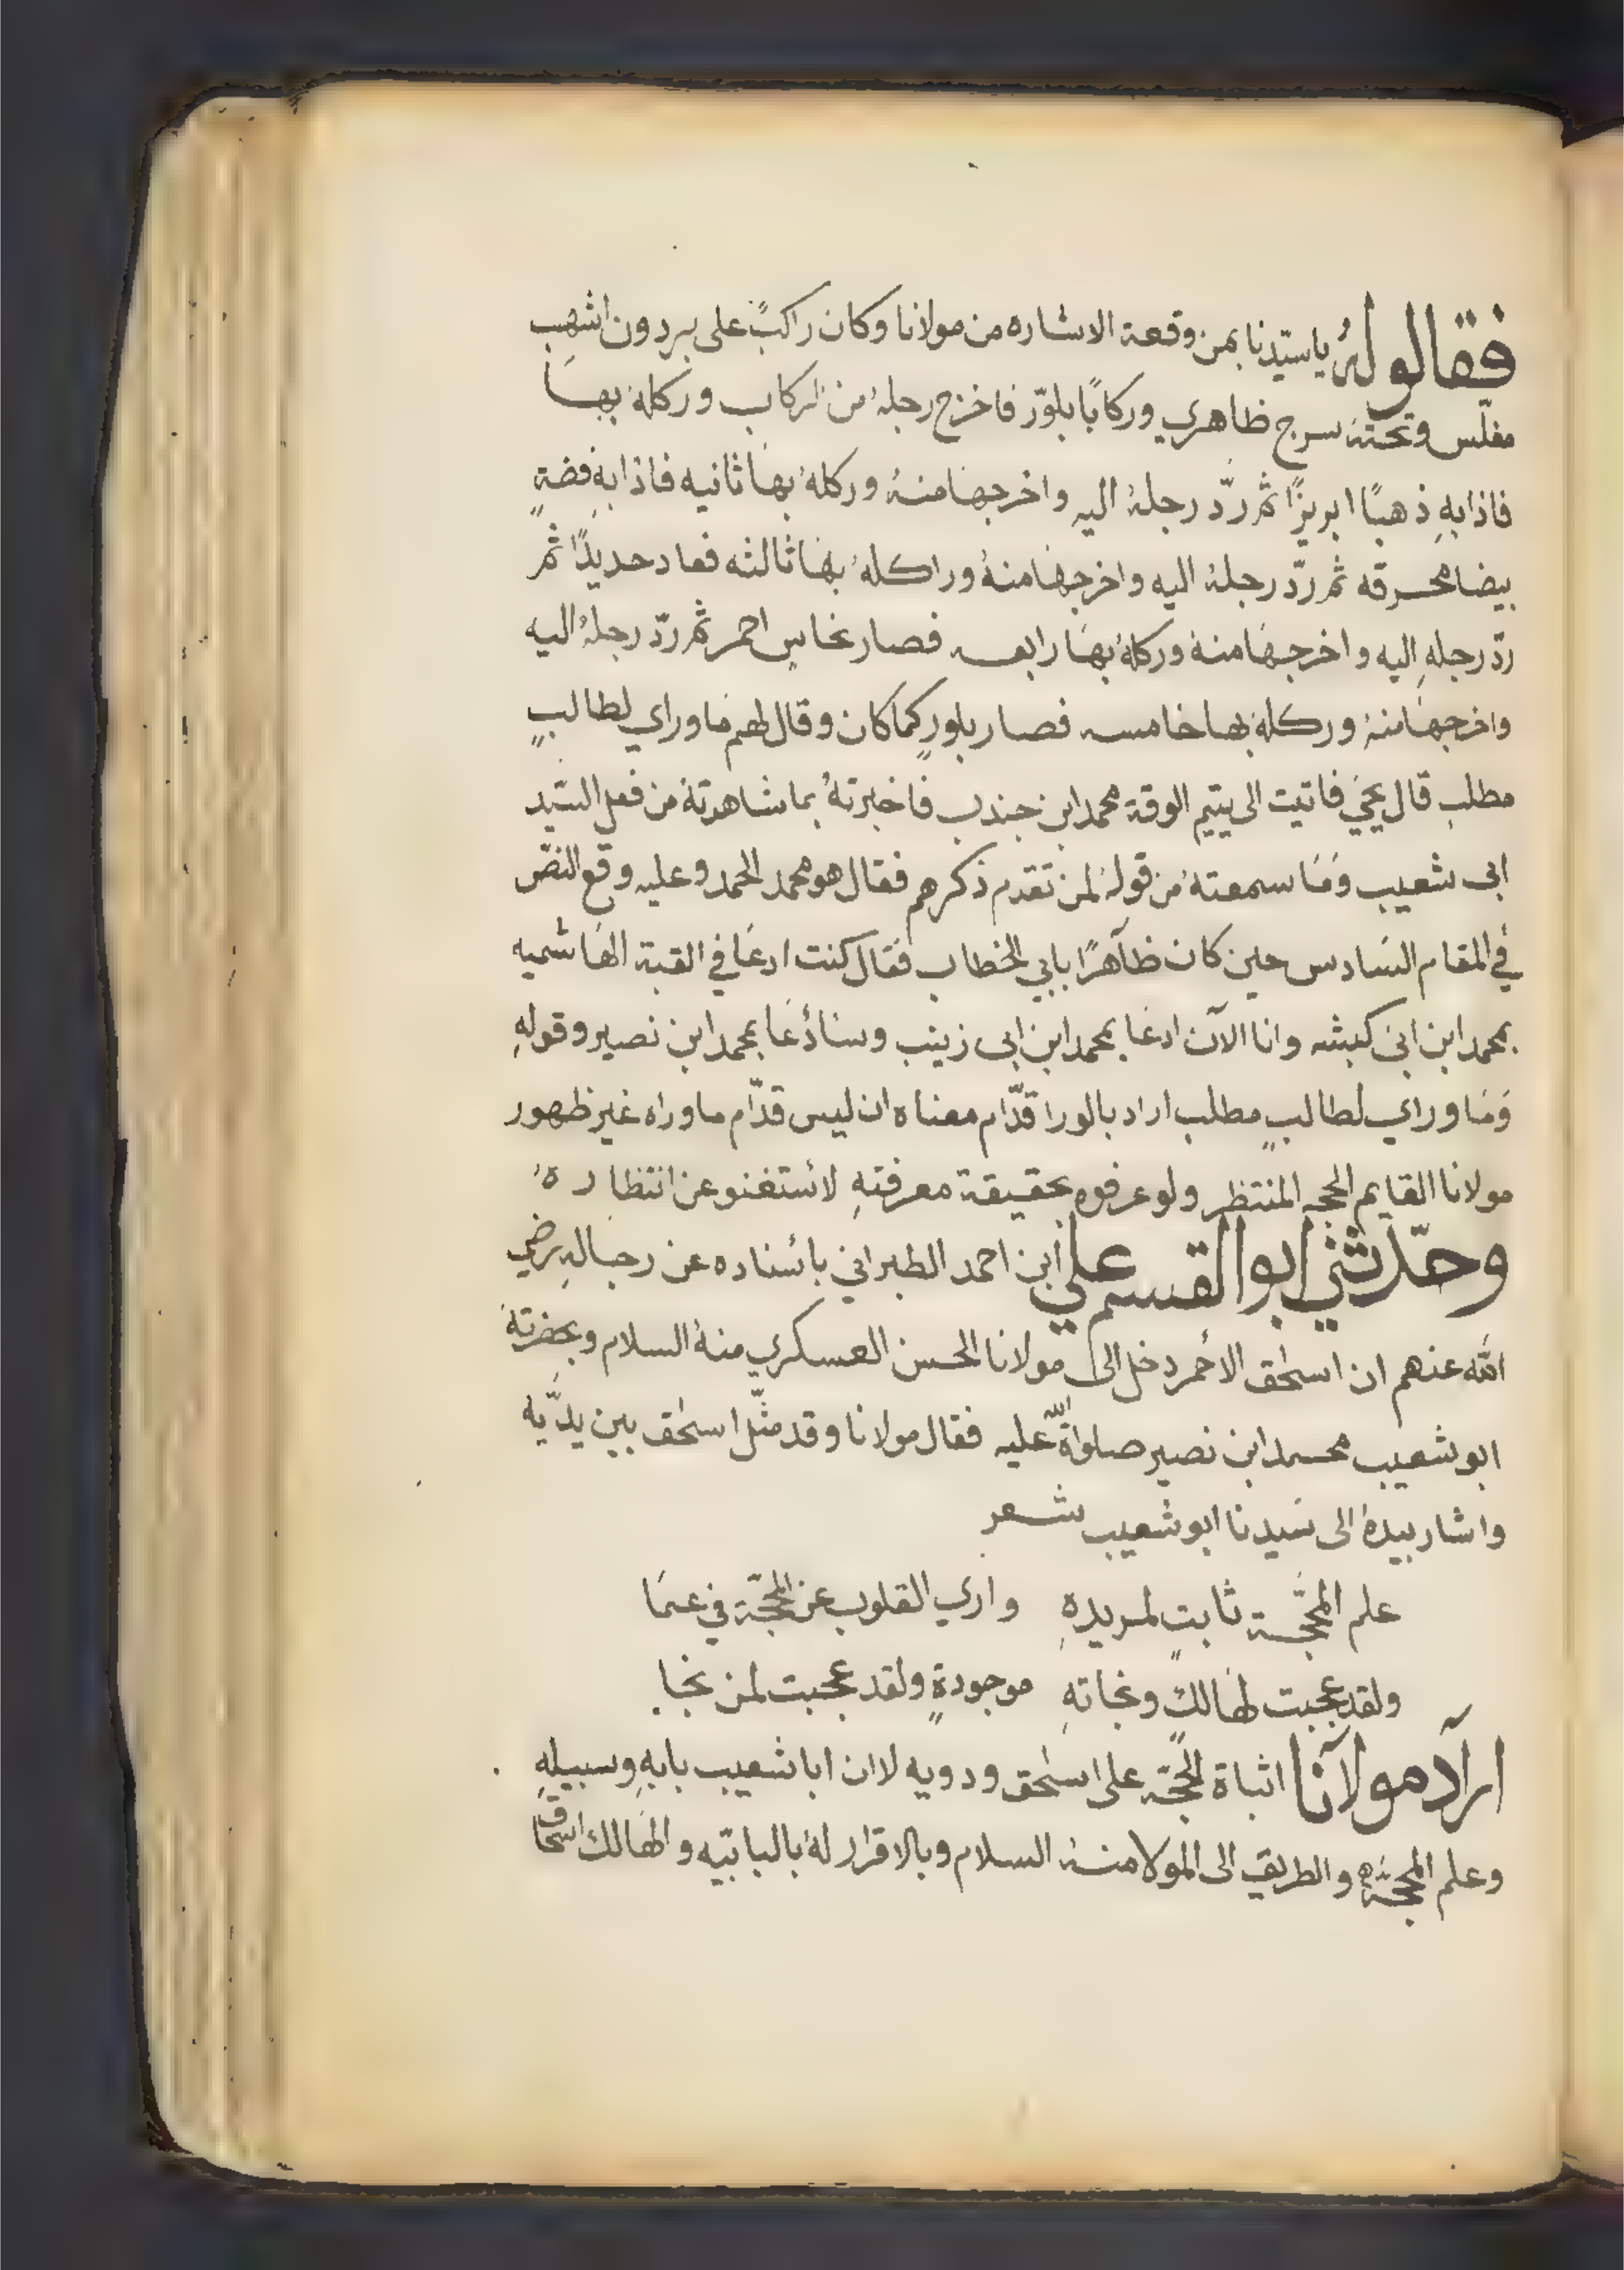 فقالو لهُ ياسيّدنا بمن وقعة الاشاره من مولانا وكان راكبً على بردون اشهب
مفلّس وتحتهُ سرج ظاهري وركابًا بلوّر فاخرج رجلهُ من الركاب وركلهُ بها
فاذا بهِ ذهبًا ابريزًا ثم ردّ رجلهُ اليه واخرجها منهُ وركلهُ بها ثانيه فاذا بهِ فضةٍ
بيضا محرقه ثم ردّ رجلهُ اليه واخرجها منهُ وراكلهُ بها ثالثه فعاد حديدًا ثم
ردّ رجلهِ اليه واخرجها منهُ وركلهُ بها رابعه فصار نحاسٍ احمر ثم ردّ رجلهُ اليه
واخرجها منهُ وركلهُ بها خامسه فصار بلورٍ كما كان وقال لهم ما وراي لطالبٍ
مطلب قال يحيَ فاتيت الى يتيم الوقة محمد ابن جندب فاخبرتهُ بما شاهدتهُ من فعل السيّد
ابى شعيب وَمَا سمعتهُ من قولهُ لمن تقدم ذكرهم فقال هو محمد الحمد وعليه وقع النصّ
في المقام السَادس حين كان ظاَهرًا بابي الخطاب فقال كنت ادعَا في القبة الهَاشميه
بمحمد ابن ابى كبشه وانا الآن ادعَا بمحمد ابن ابى زينب وسنادُعَا بمحمد ابن نصير وقولهِ
وَمَا وراي لطالبٍ مطلب اراد بالورا قدّام معناه ان ليس قدّام ما وراه غير ظهور
مولانا القايم الحجه المنتظر ولو عرفوه بحقيقة معرفتهِ لاستغنو عن انتظاره
وحدّثني ابو القسم علي ابن احمد الطبراني بأسناده عن رجالهِ رضي
الله عنهم ان اسحٰق الاحمر دخل الى مولانا الحسن العسكري منهُ السلام وبحضرتهُ
ابو شعيب محمد ابن نصير صلواة الله عليه فقال مولانا وقد مثّل اسحٰق بين يدَيه
واشار بيدهُ الى سَيدنا ابو شعيب شعر
علم المحجّة ثابتٍ لمريدهِ وارى القلوب عن المحجّة في عمَا
ولقد عجبت لهَالكٍ ونجاتهِ موجودةٍ ولقد عجبت لمن نجا
ارآد مولآنا اثباة الحجّة على اسحٰق ودويه لاان ابا شعيب بابهِ وسبيلهِ
وعلم المحجّه والطريق الى المولا منهُ السلام وبالاقرار لهُ بالبابيّه والهَالك اسحٰاق